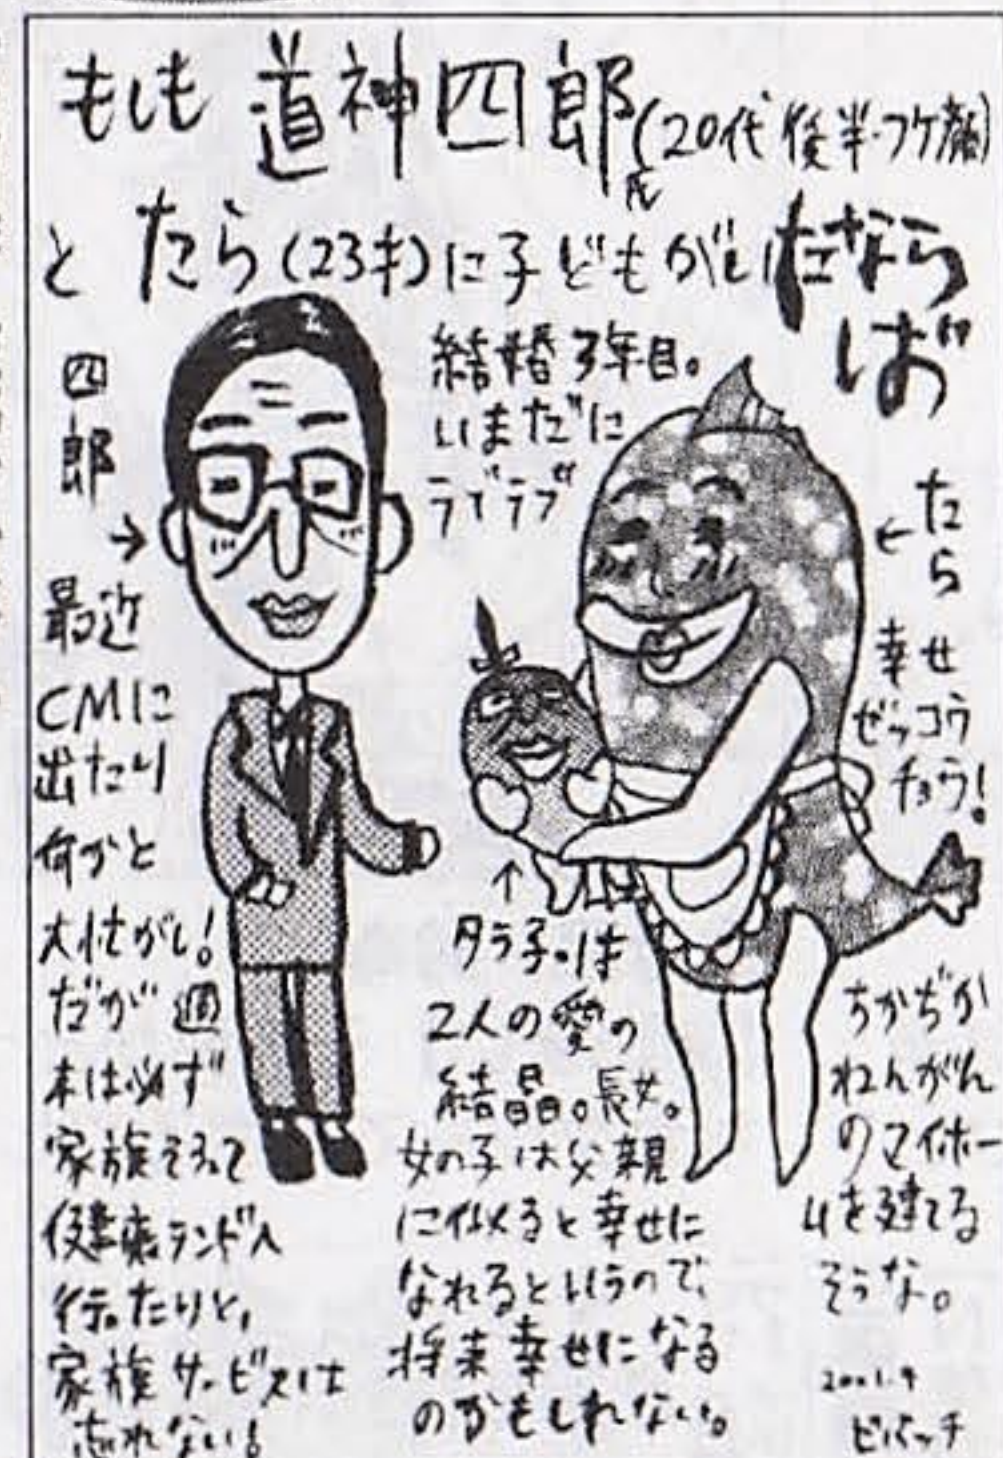 もしも 道神四郎氏(20代後半・フケ顔)
と たら(23才)に子どもがいたなら
ば
四
郎
→
最近
CMに
出たり
何かと
大忙がし!
だが週
末は必ず
家族そろって
健康ランドへ
行ったりと、
家族サービスは
忘れない!
結婚3年目。
いまだに
ラブラブ
←たら
幸せ
ゼッコウ
チョウ!
↑
タラ子は
2人の愛の
結晶。長女。
女の子は父親
に似ると幸せに
なれるというので、
将来幸せになる
のかもしれない。
ちかぢか
ねんがん
のマイホー
ムを建てる
そうな。
2001.9
ピバッチ